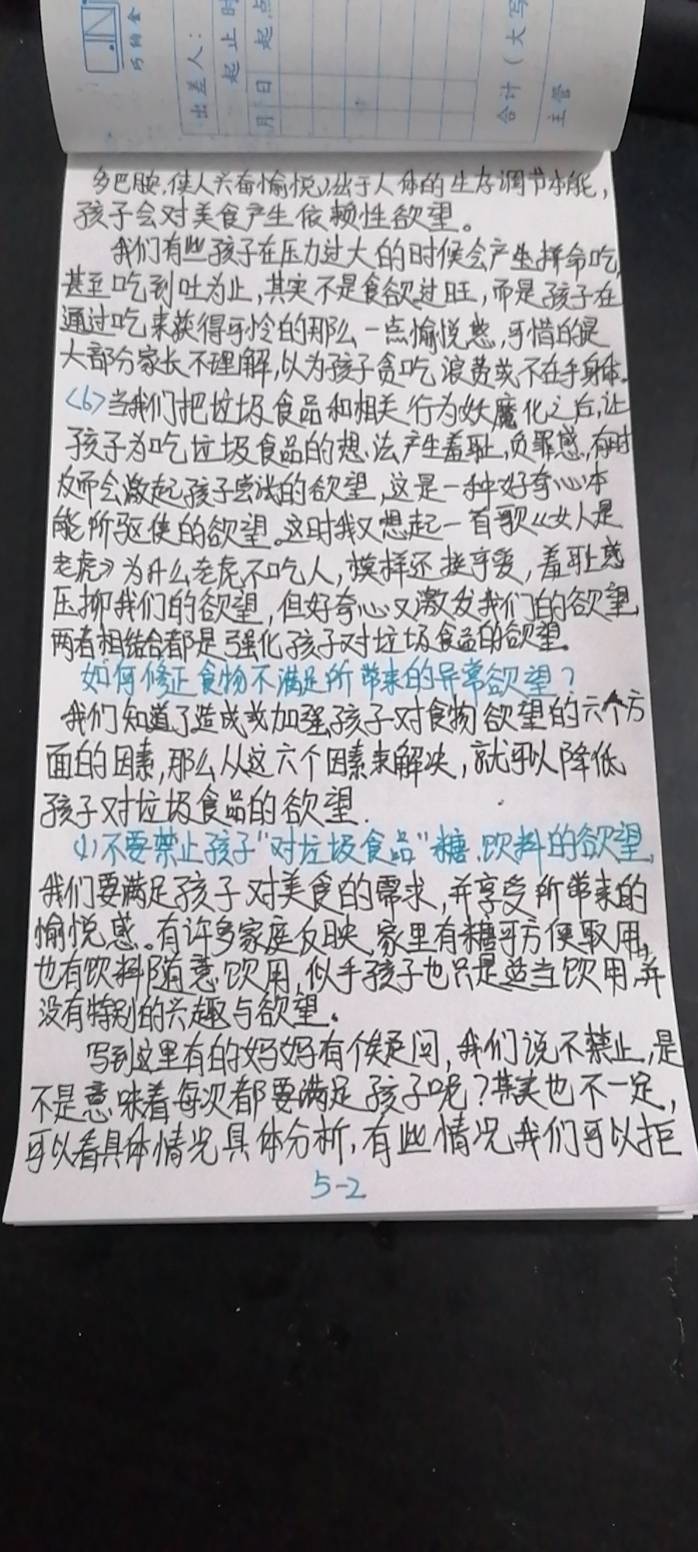 巧纳金
出差人：
起止时
月 日 起点
合计（大写
主管
多巴胺,使人兴奋愉悦）出于人体的生存调节本能，
孩子会对美食产生依赖性欲望。
我们有些孩子在压力过大的时候会产生拼命吃，
甚至吃到吐为止，其实不是食欲过旺，而是孩子在
通过吃来获得可怜的那么一点愉悦感，可惜的是
大部分家长不理解，以为孩子贪吃浪费或不在乎身体。
<6>当我们把垃圾食品和相关行为妖魔化之后，让
孩子为吃垃圾食品的想法产生羞耻，负罪感，有时
反而会激起孩子尝试的欲望，这是一种好奇心本
能所驱使的欲望。这时我又想起一首歌《女人是
老虎》为什么老虎不吃人，模样还挺可爱，羞耻感
压抑我们的欲望，但好奇心又激发我们的欲望，
两者相结合都是强化孩子对垃圾食品的欲望。
如何修正食物不满足所带来的异常欲望？
我们知道了造成或加强孩子对食物欲望的六个方
面的因素，那么从这六个因素来解决，就可以降低
孩子对垃圾食品的欲望.
(1)不要禁止孩子“对垃圾食品”糖、饮料的欲望，
我们要满足孩子对美食的需求，并享受所带来的
愉悦感。有许多家庭反映，家里有糖可方便取用，
也有饮料随意饮用，似乎孩子也只是适当饮用，并
没有特别的兴趣与欲望。
写到这里有的妈妈有个疑问，我们说不禁止，是
不是意味着每次都要满足孩子呢？其实也不一定，
可以看具体情况具体分析，有些情况我们可以拒
5-2